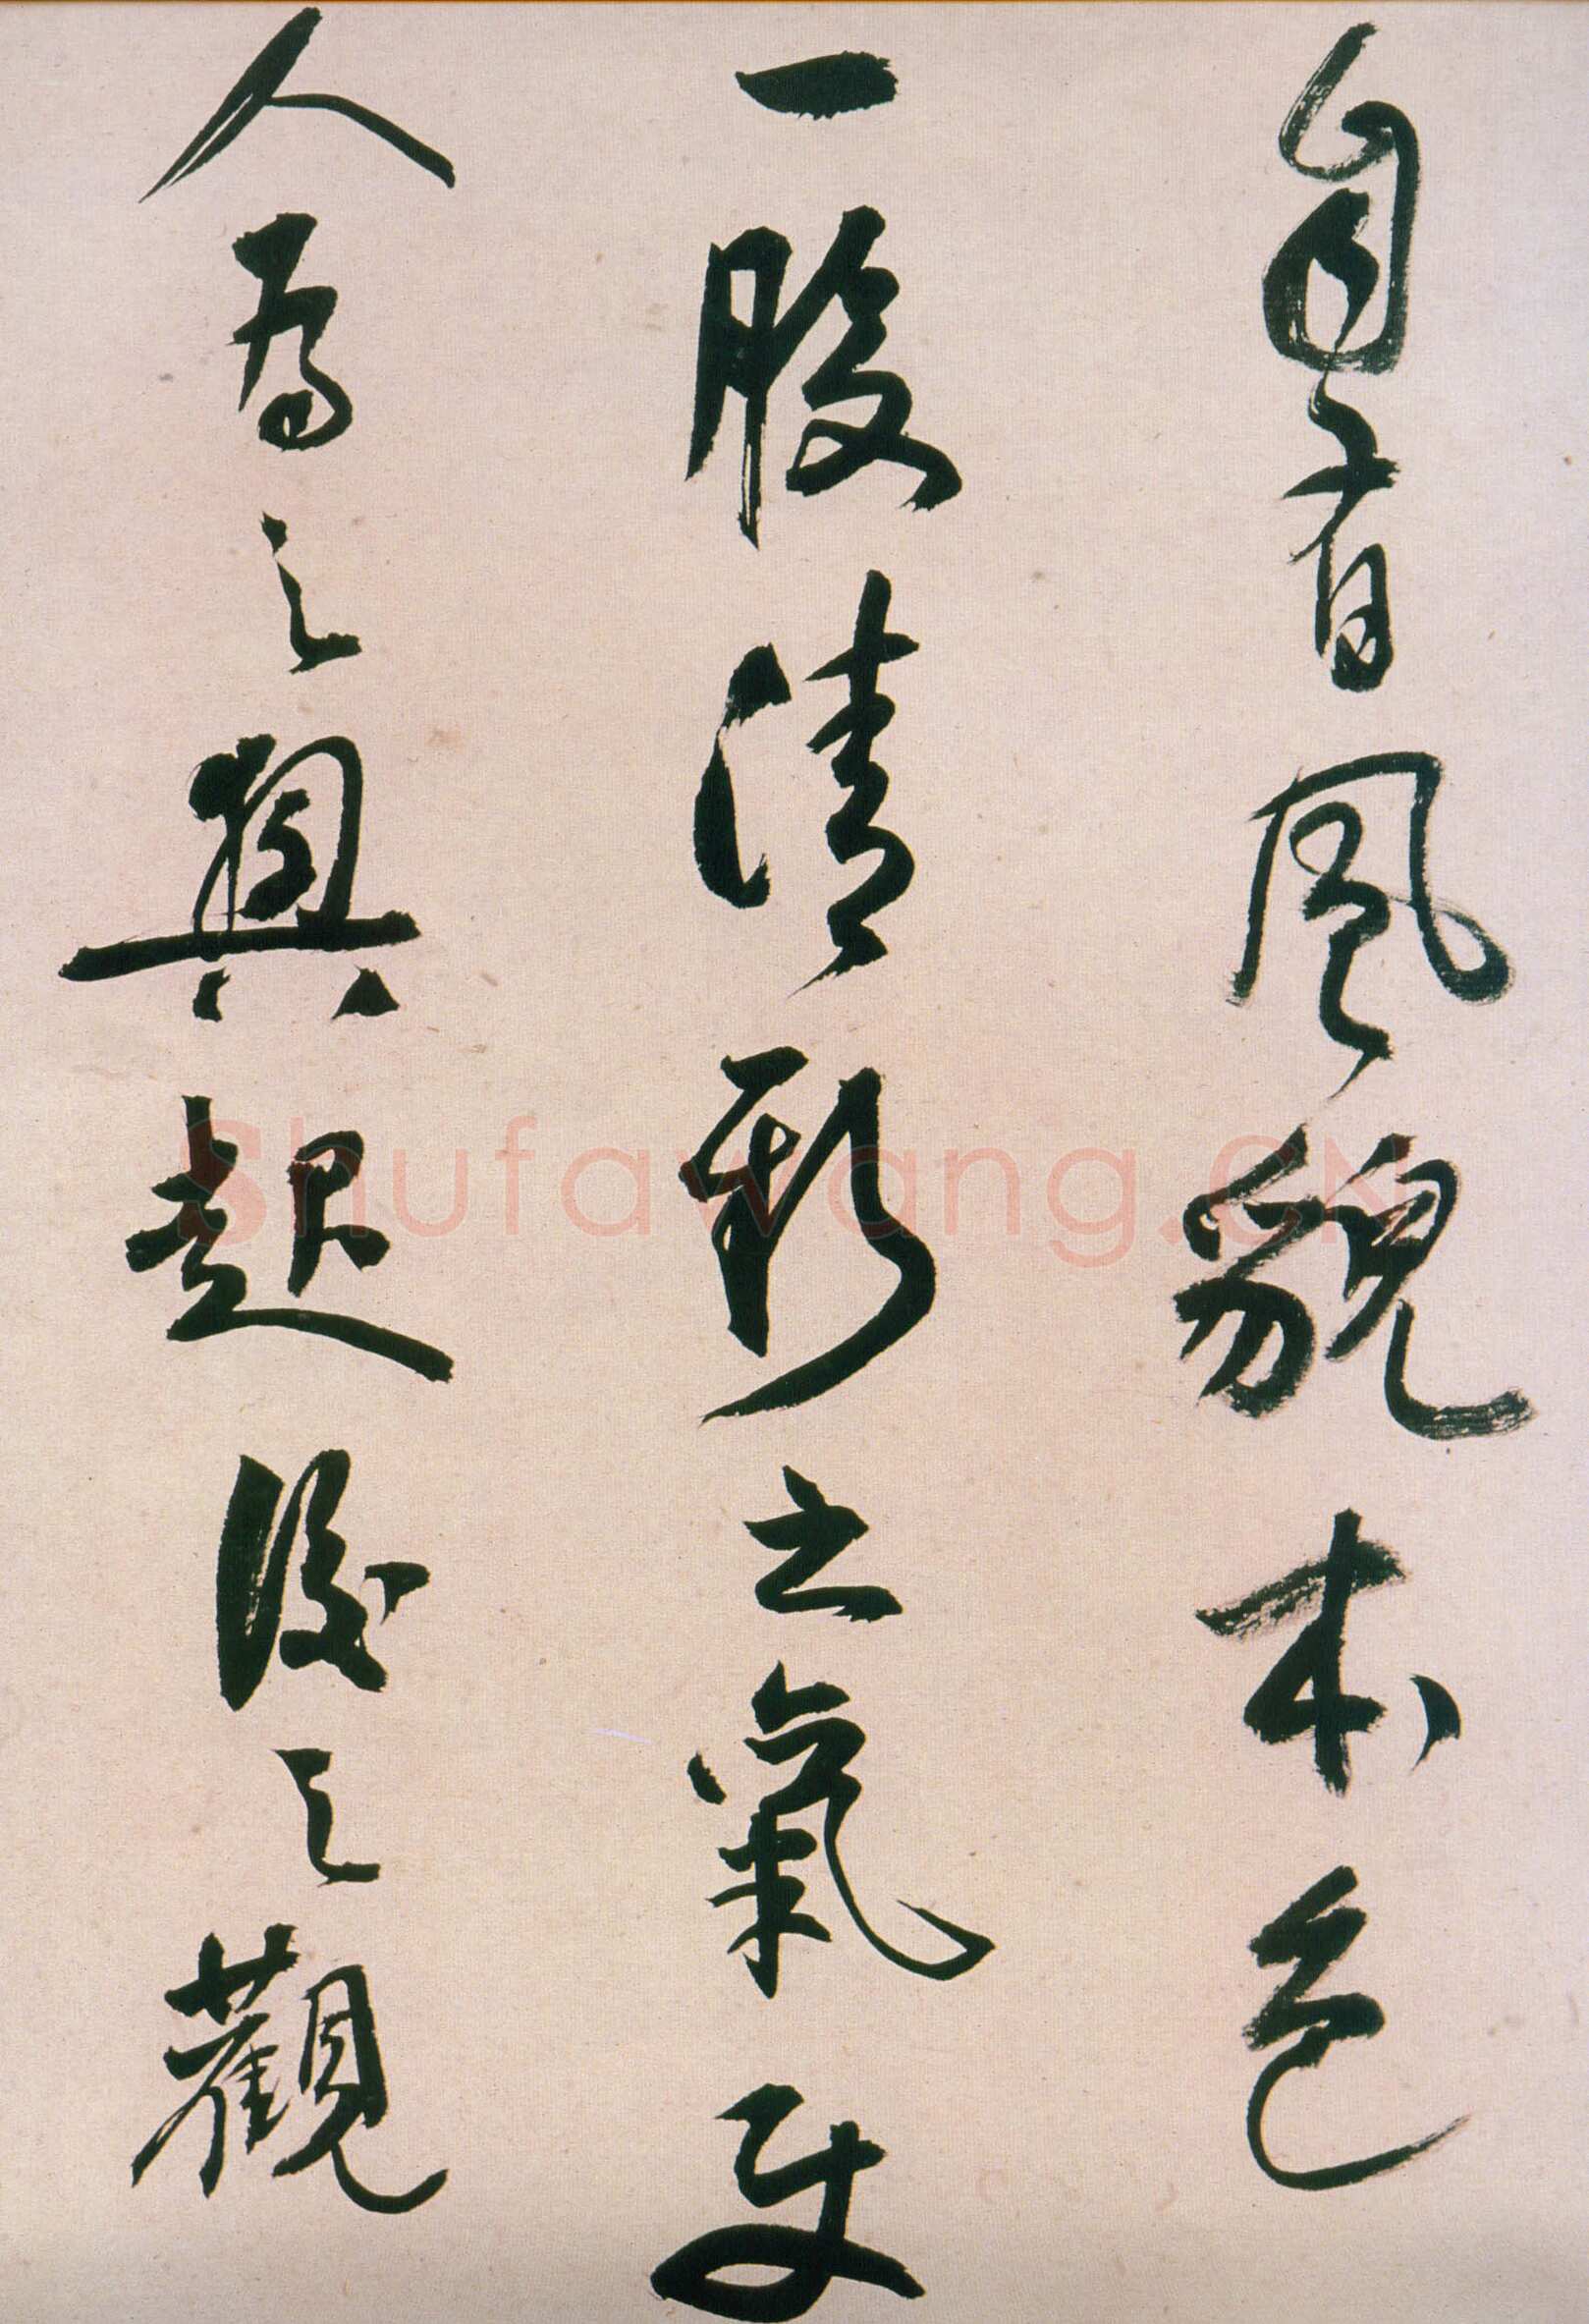 自有風貌本色
一股清新之氣
人為之興起後之觀
Shufawang.CN